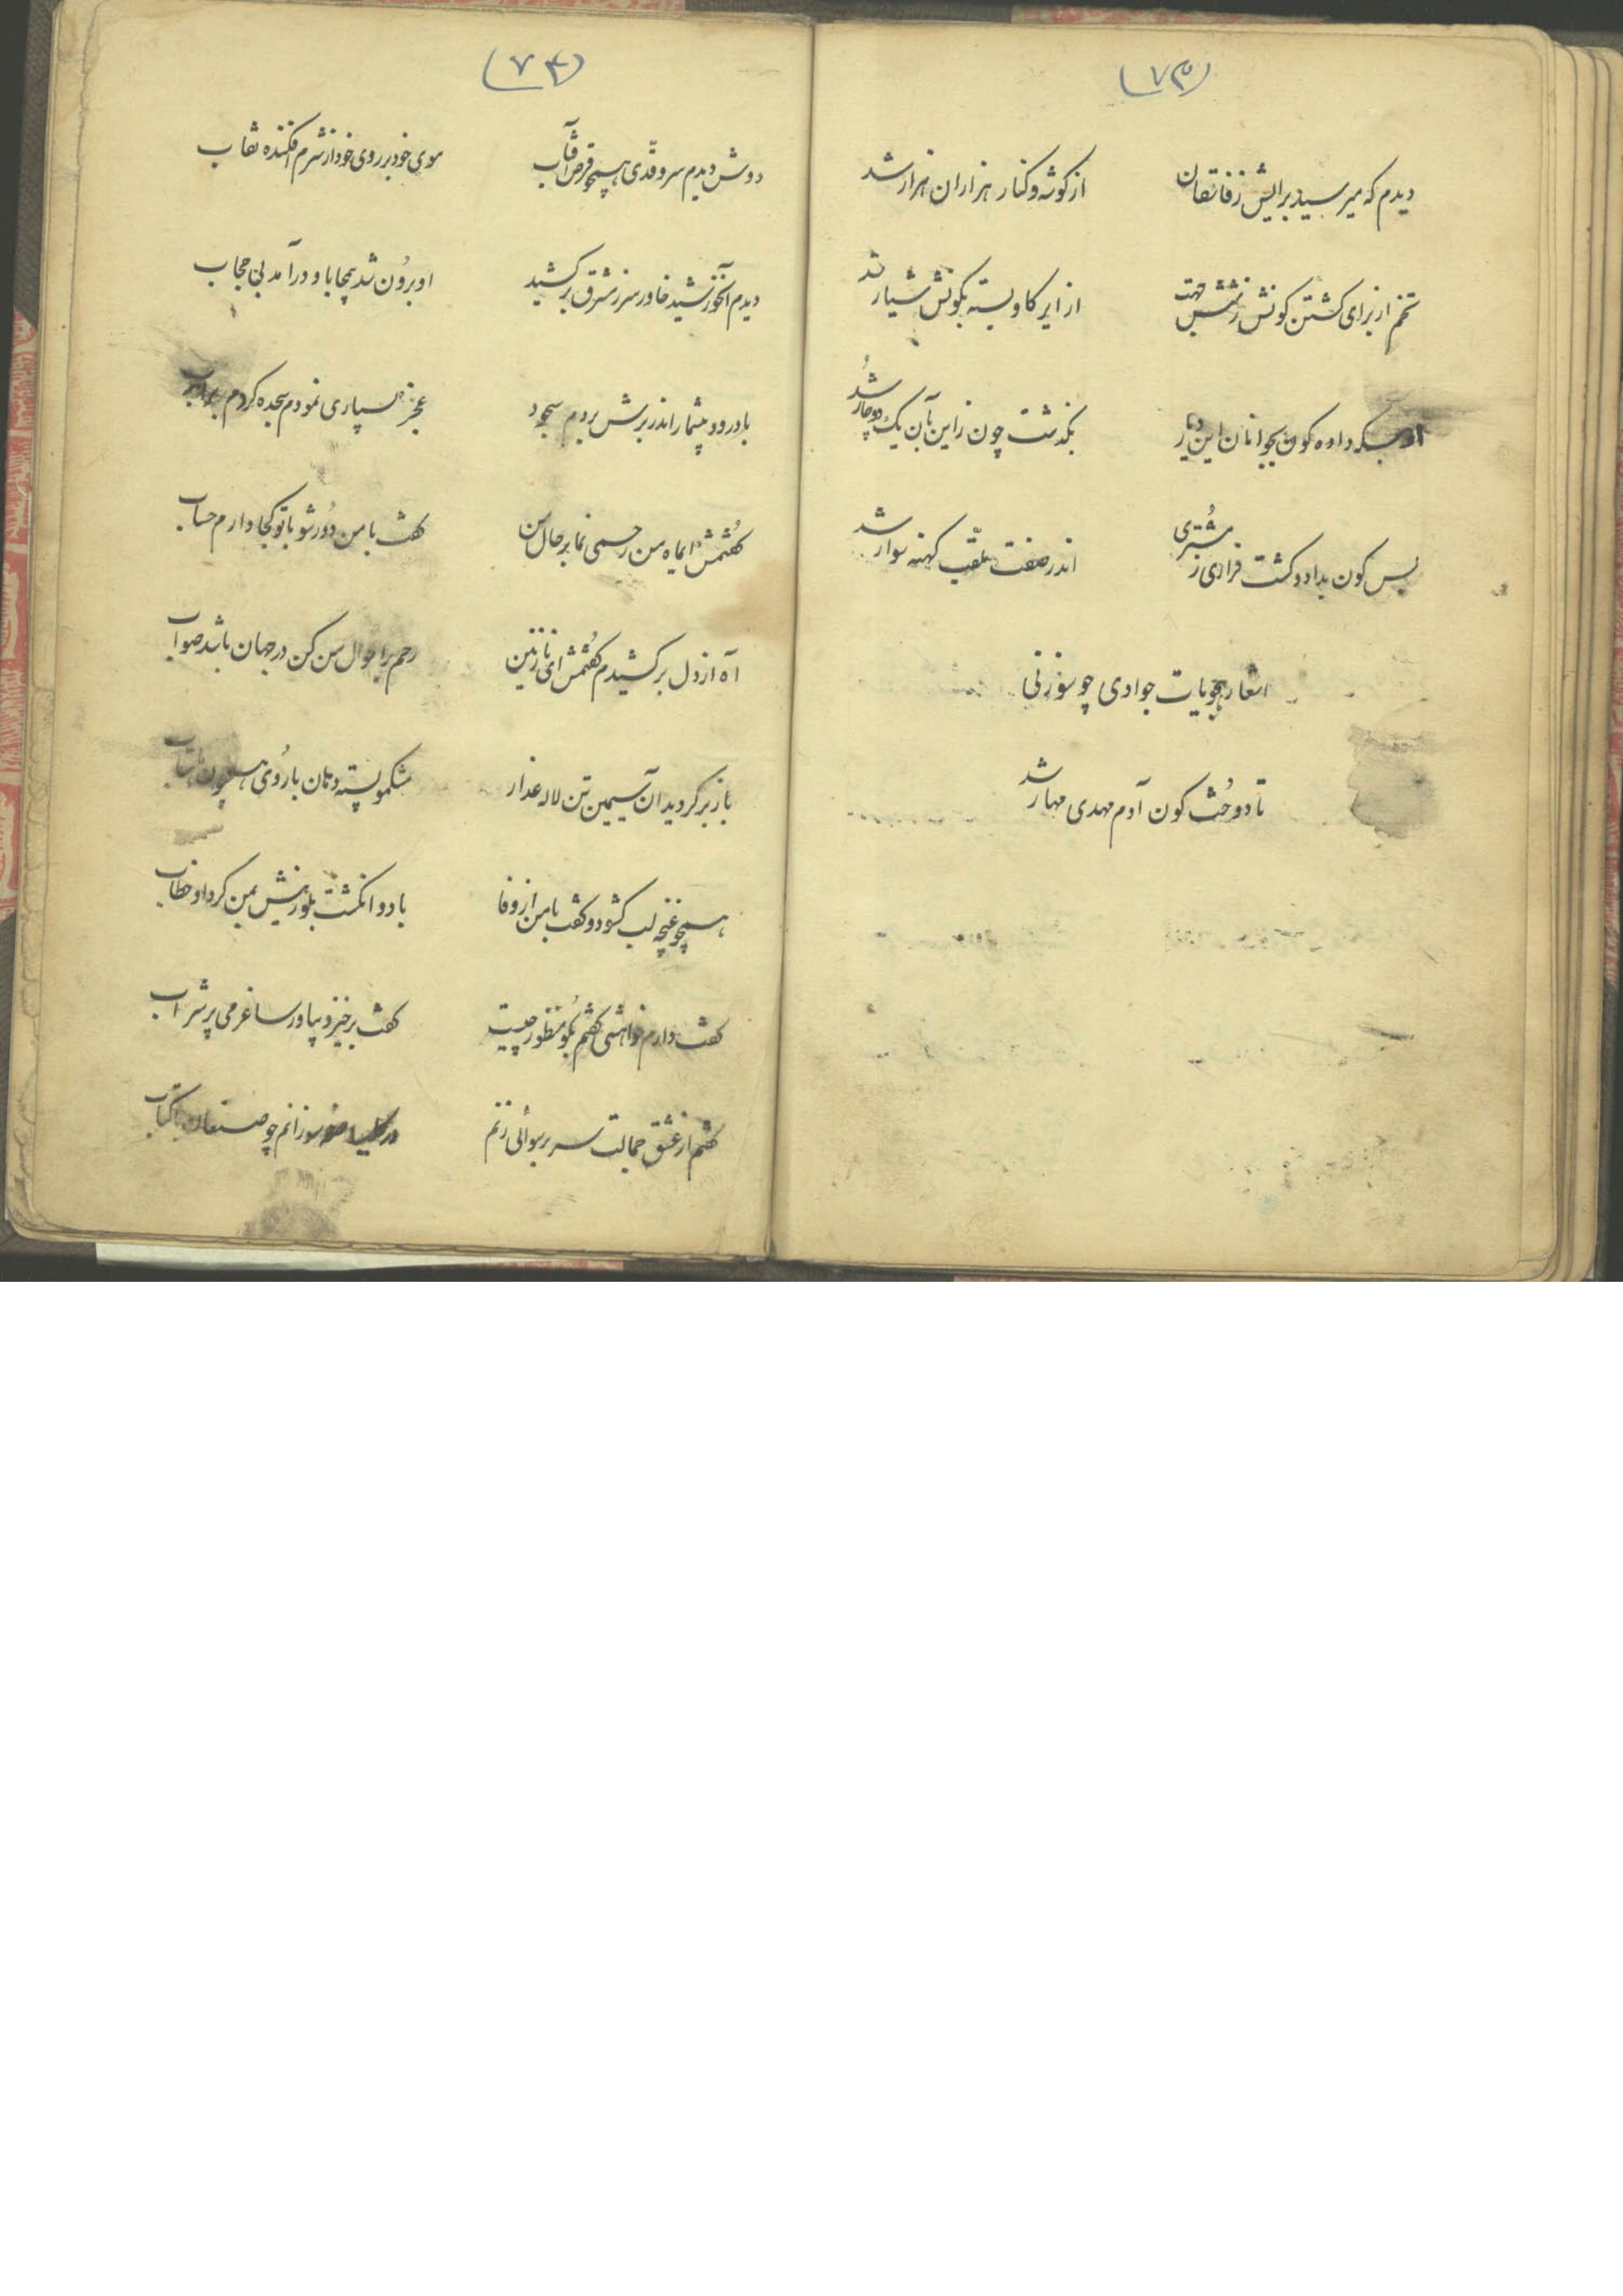 (۷۳)
دیدم که میرسید برایش ز فاتقان
از کوشه و کنار هزاران هزار شد
تخم از برای کشتن کونش ز شش جهت
از ایر کاو بسته بکونش شیار شد
از بسکه داده کون بجوانان این دیار
بکذشت چون ز این بآن یک دوچار شد
بس کون بداد و کشت فراری ز مشتری
اندر صفت ملقب کهنه سوار شد
اشعار هجویات جوادی چو سوزنی
تا دوخت کون آدم مهدی مهار شد
(۷۴)
دوش دیدم سرو قدّی همچو قرص آفتاب
موی خود بر روی خود از شرم افکنده نقاب
دیدم آنخورشید خاور سر ز شرق برکشید
او برون شد بیمحابا و درآمد بی حجاب
با درود بیشمار اندر برش بردم سجود
عجز بسیاری نمودم سجده کردم
کفتمش ایماه من رحمی نما بر حال من
کفت با من دُور شو با تو کجا دارم حساب
آه از دل برکشیدم کفتمش ای نازنین
رحم بر احوال من کن در جهان باشد صواب
باز برکردید آن سیمین تن لاله عذار
مشکمو پسته دهان با رُوی همچون
همچو غنچه لب کشود و کفت با من از وفا
با دو انکشت بلورینش بمن کرد او خطاب
کفت دارم خواهشی کفتم بکو منظور چیست
کفت برخیز و بیاور ساغر می پر شراب
کفتم از عشق جمالت سر برسوائی زنم
سوزانم چو صنعان کتاب